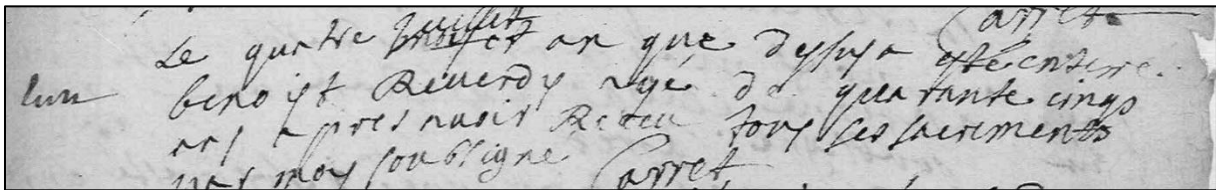 Carret
Le quatre juillet an que dessus a esté enterré
benoist Reverdy agé de quarante cinqs
ans apres avoir Receu tous ses sacrements
par moy soubsigne Carret